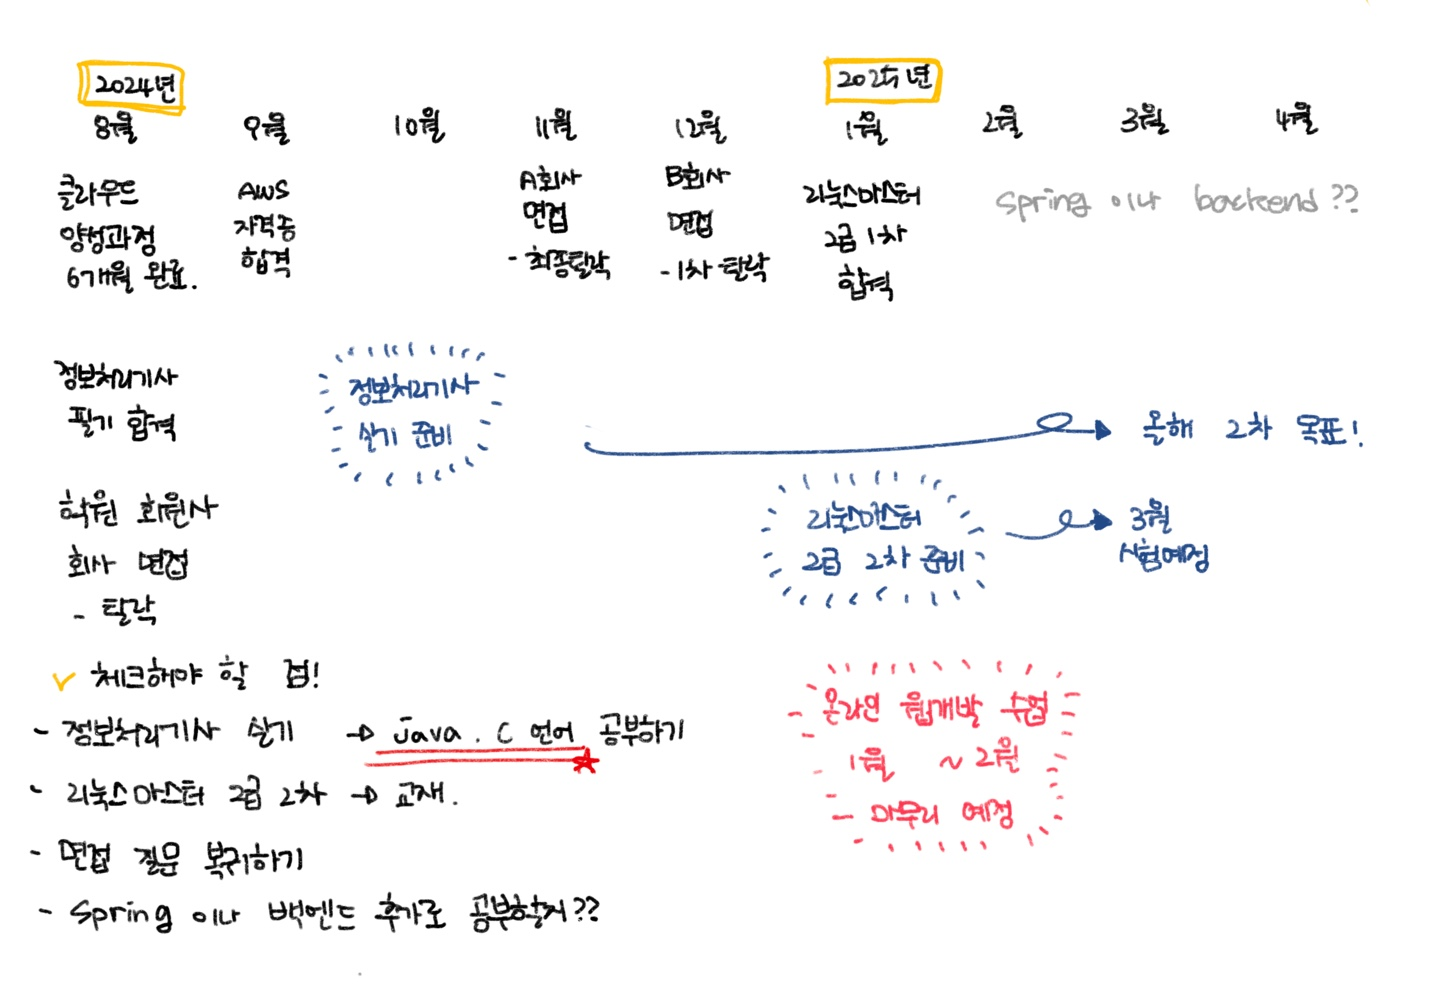 2024년
2025년
8월 9월 10월 11월 12월 1월 2월 3월 4월
클라우드
양성과정
6개월 완료.
AWS
자격증
합격
A회사
면접
- 최종탈락
B회사
면접
- 1차 탈락
리눅스마스터
2급 1차
합격
Spring 이나 backend??
정보처리기사
필기 합격
정보처리기사
실기 준비
올해 2차 목표!
학원 회원사
회사 면접
- 탈락
리눅스마스터
2급 2차 준비
3월
시험예정
✓ 체크해야 할 점!
- 정보처리기사 실기 → java . C 언어 공부하기
- 리눅스마스터 2급 2차 → 교재.
- 면접 질문 복귀하기
- Spring 이나 백엔드 추가로 공부할지??
온라인 웹개발 수업
1월 ~ 2월
- 마무리 예정